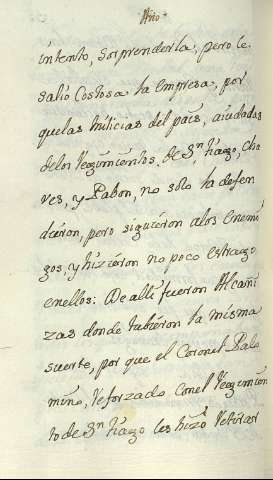 Año
intento, Sorprenderla, pero le
salió Costosa la empresa, por
que las Milicias del país, aiudadas
delos Regimientos, de Sn. tiago, Cha
ves, y Pabon, no solo la defen
dieron, pero siguieron alos Enemi
gos, y hizieron no poco estrago
en ellos: De alli fueron Alcañi
zas donde tubieron la misma
suerte, por que el Coronel Palo
mino, Reforzado, conel Regimien
to de Sn. tiago les hizo Retirar